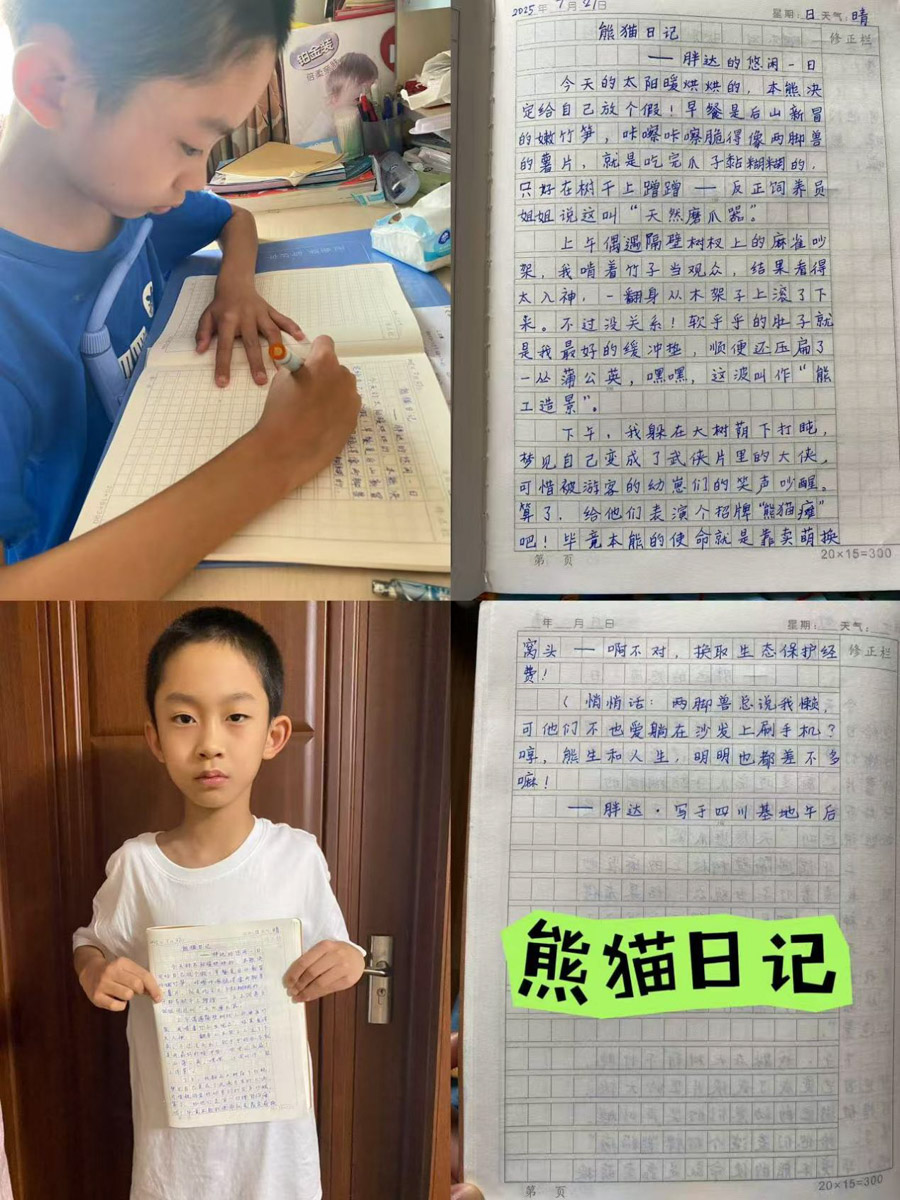 铂金装
2025年7月21日
星期:日 天气:晴
修正栏
熊猫日记
——胖达的悠闲一日
今天的太阳暖烘烘的,本熊决
定给自己放个假!早餐是后山新冒
的嫩竹笋,咔嚓咔嚓脆得像两脚兽
的薯片,就是吃完爪子黏糊糊的,
只好在树干上蹭蹭——反正饲养员
姐姐说这叫“天然磨爪器。”
上午偶遇隔壁树杈上的麻雀吵
架,我啃着竹子当观众,结果看得
太入神,一翻身从木架子上滚了下
来。不过没关系!软乎乎的肚子就
是我最好的缓冲垫,顺便还压扁了
一丛蒲公英,嘿嘿,这波叫作“熊
工造景”。
下午,我躲在大树荫下打盹,
梦见自己变成了武侠片里的大侠,
可惜被游客的幼崽们的笑声吵醒。
算了,给他们表演个招牌“熊猫瘫”
吧!毕竟本熊的使命就是靠卖萌换
第 页
20×15=300
年 月 日
星期: 天气:
修正栏
窝头——啊不对,换取生态保护经
费!
(悄悄话:两脚兽总说我懒
可他们不也爱躺在沙发上刷手机?
哼,熊生和人生,明明也都差不多
嘛!
——胖达·写于四川基地午后
熊猫日记
第 页
20×15=300